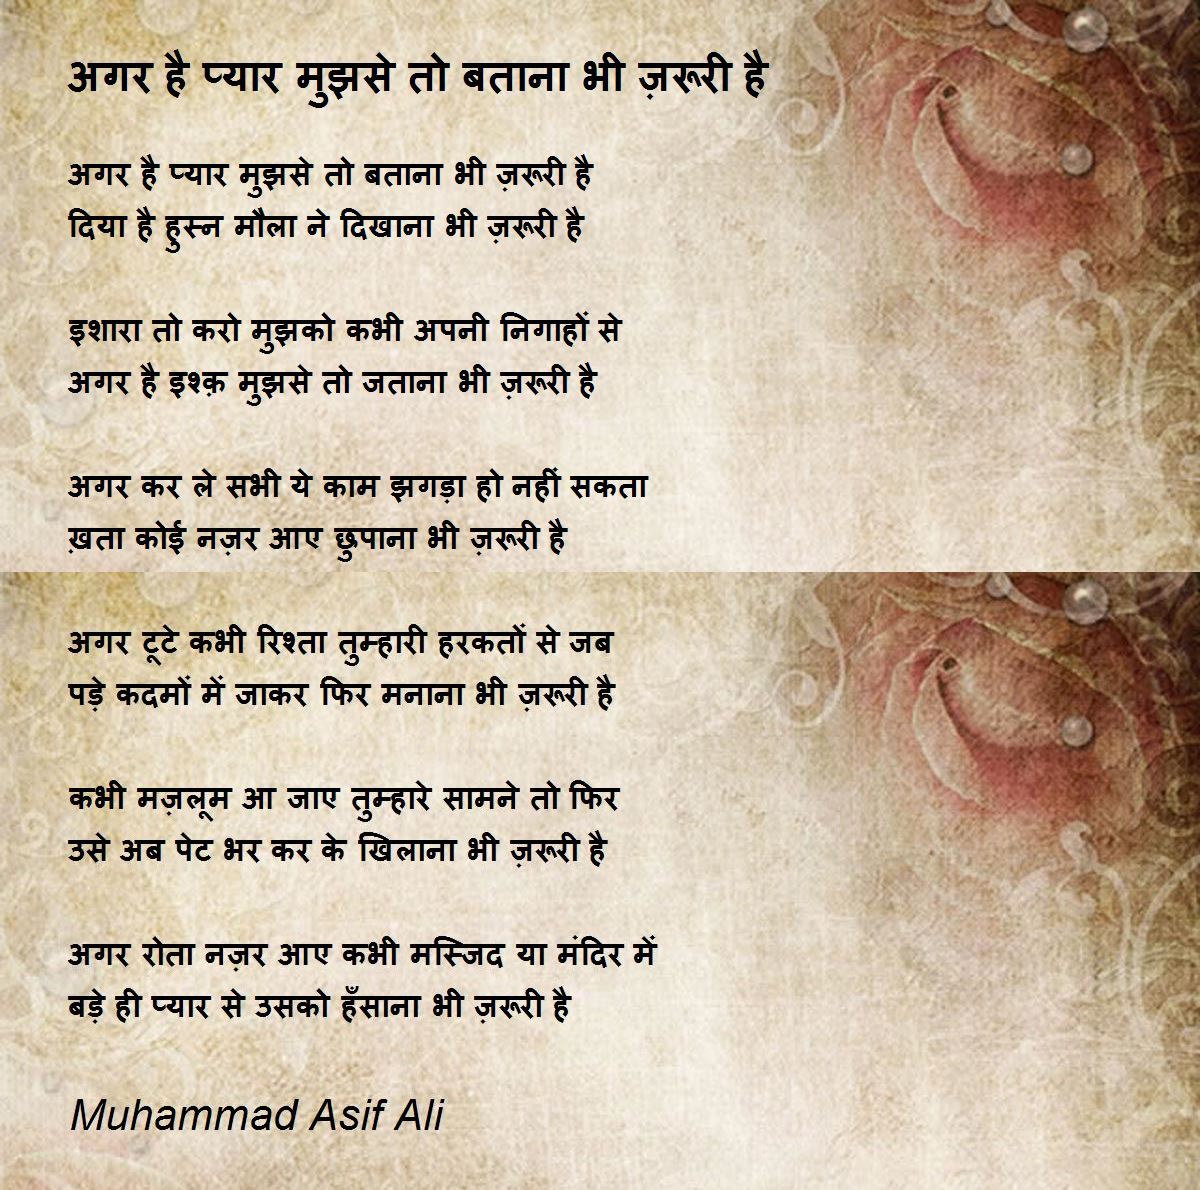 अगर है प्यार मुझसे तो बताना भी ज़रूरी है
अगर है प्यार मुझसे तो बताना भी ज़रूरी है
दिया है हुस्न मौला ने दिखाना भी ज़रूरी है
इशारा तो करो मुझको कभी अपनी निगाहों से
अगर है इश्क़ मुझसे तो जताना भी ज़रूरी है
अगर कर ले सभी ये काम झगड़ा हो नहीं सकता
ख़ता कोई नज़र आए छुपाना भी ज़रूरी है
अगर टूटे कभी रिश्ता तुम्हारी हरकतों से जब
पड़े कदमों में जाकर फिर मनाना भी ज़रूरी है
कभी मज़लूम आ जाए तुम्हारे सामने तो फिर
उसे अब पेट भर कर के खिलाना भी ज़रूरी है
अगर रोता नज़र आए कभी मस्जिद या मंदिर में
बड़े ही प्यार से उसको हँसाना भी ज़रूरी है
Muhammad Asif Ali